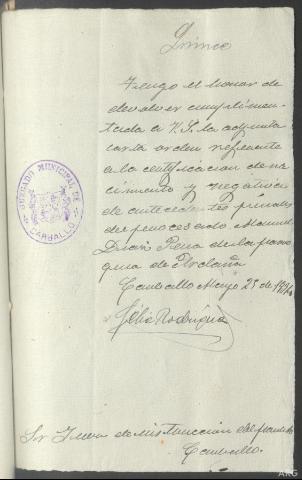 Tengo el honor de
devolver cumplimen-
tada a V.S. la adjunta
carta orden referente
a la certificación de na
cimiento y negativa
de antecedentes penales
del procesado Manuel
Pena de la parro
quia de
Carballo Mayo 23 de
Félix Rodríguez
JUZGADO MUNICIPAL DE
CARBALLO
Sr Juez de instrucción del partido
Carballo.
ARG